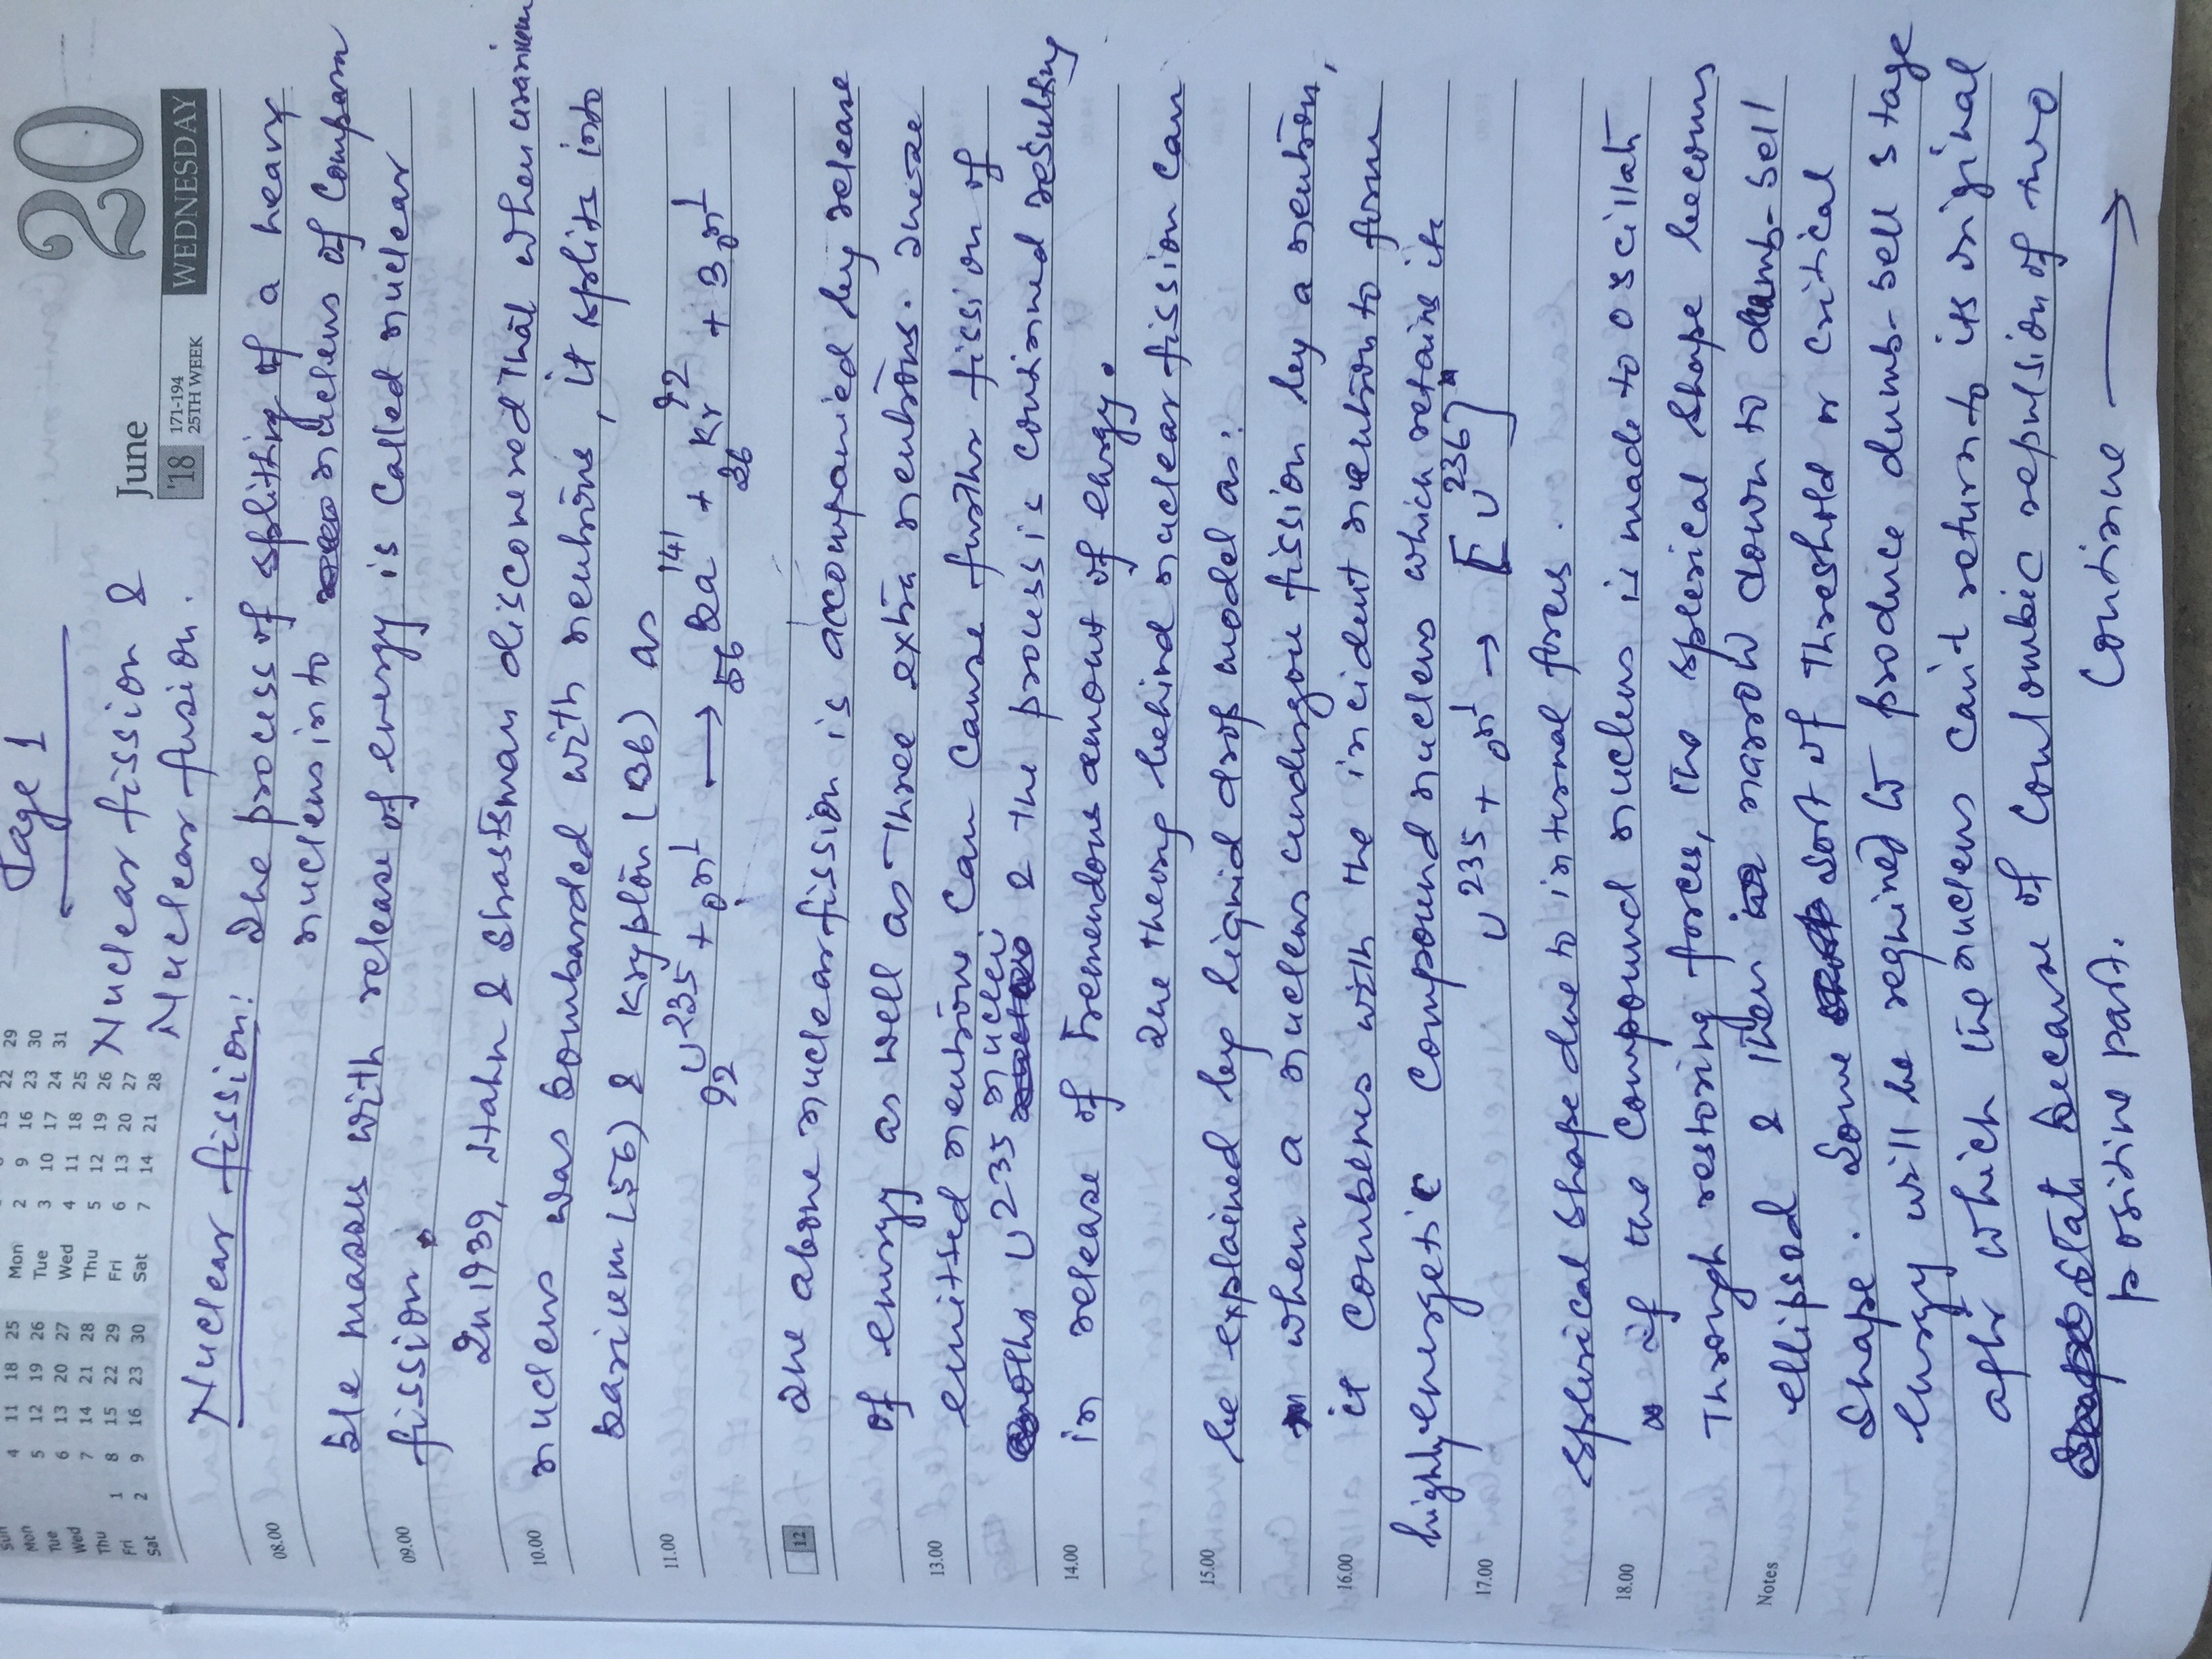 Page 1
20
June
'18
171-194
25TH WEEK
WEDNESDAY
Mon 4 11 18 25 Mon 2 9 16 23 30
Tue 5 12 19 26 Tue 3 10 17 24 31
Wed 6 13 20 27 Wed 4 11 18 25
Thu 7 14 21 28 Thu 5 12 19 26
Fri 1 8 15 22 29 Fri 6 13 20 27
Sat 2 9 16 23 30 Sat 7 14 21 28
Nuclear fission &
Nuclear fusion.
Nuclear fission: The process of spliting of a heavy
08.00
nucleus into nucleus of Compara
ble masses with release of energy is Called nuclear
09.00
fission.
In 1939, Hahn & Strassman discovered that when uranium
10.00
nucleus was bombarded with neutrons, it splits into
barium (56) & Krypton (36) as
11.00
92 U 235 + 0n1 → 56 Ba 141 + 36 Kr 92 + 3 0n1
12
The above nuclear fission is accompanied by release
of energy as well as three extra neutrons. These
13.00
emitted neutrons can cause further fission of
other U235 nuclei & the process is continued resulting
14.00
in release of tremendous amount of energy.
The theory behind nuclear fission can
15.00
be explained by liquid drop model as:
when a nucleus undergoes fission by a neutron,
16.00
it combines with the incident neutron to form
highly energetic Compound nucleus which retains its
17.00
U 235 + 0n1 → [U 236]*
spherical shape due to internal forces.
18.00
if the compound nucleus is made to oscillate
Through restoring forces, the spherical shape becomes
Notes
ellipsod & then narrow down to dumb-bell
Shape. Some sort of threshold or critical
energy will be required to produce dumb-bell stage
after which the nucleus can't return to its original
state because of coulombic repulsion of two
positive part.
Continue →